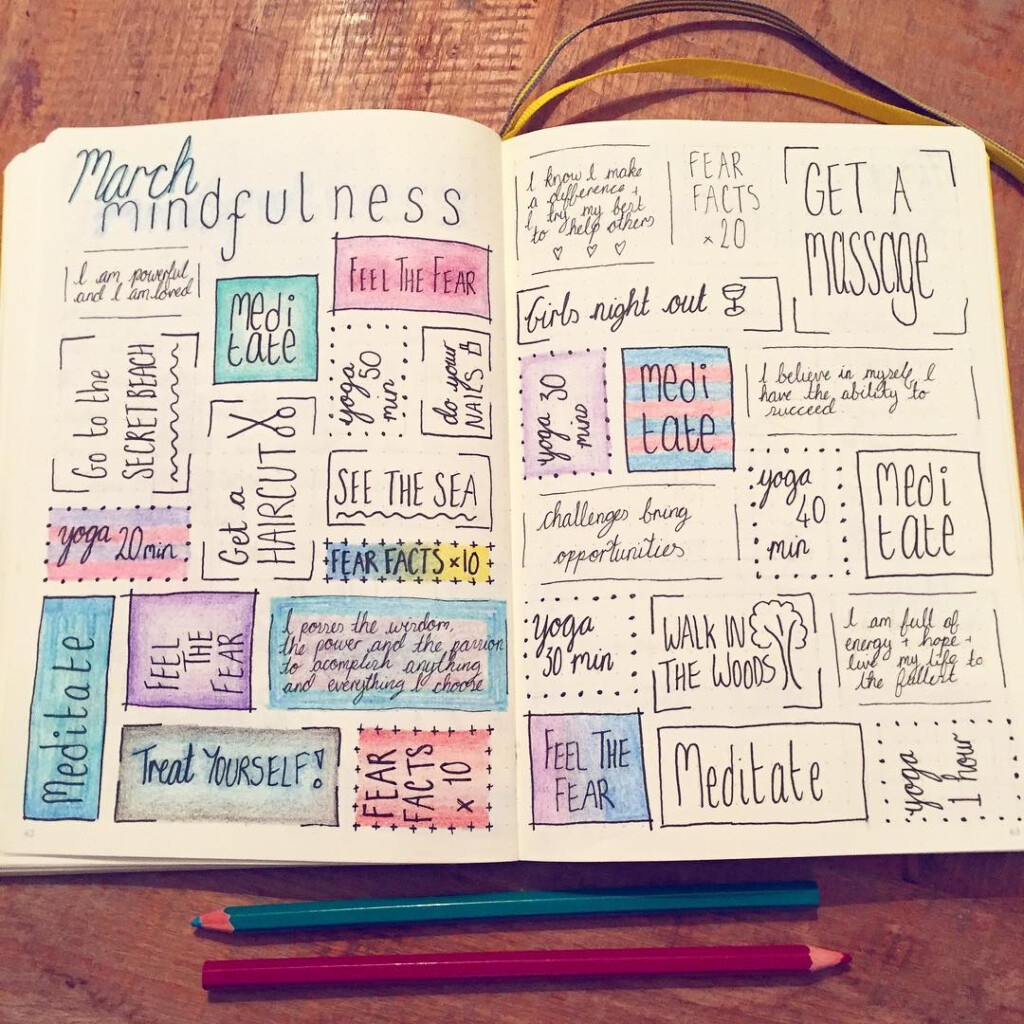 March
mindfulness
I am powerful
and I am loved
MEDI
tate
FEEL THE FEAR
Go to the
SECRET BEACH
Get a
HAIRCUT
yoga
50
min
do your
NAILS
SEE THE SEA
yoga 20 min
FEAR FACTS x10
Meditate
FEEL
THE
FEAR
I posses the wisdom,
the power and the passion
to acomplish anything
and everything I choose
Treat YOURSELF!
FEAR
FACTS
x 10
62
I know I make
a difference +
I try my best
to help others
FEAR
FACTS
x 20
GET A
massage
Girls night out
yoga 30
mins
medi
tate
I believe in myself, I
have the ability to
succeed
challenges bring
opportunities
yoga
40
min
MEDI
tate
yoga
30 min
WALK IN
THE WOODS
I am full of
energy + hope +
live my life to
the fullest
FEEL THE
FEAR
Meditate
yoga
1 hour
63